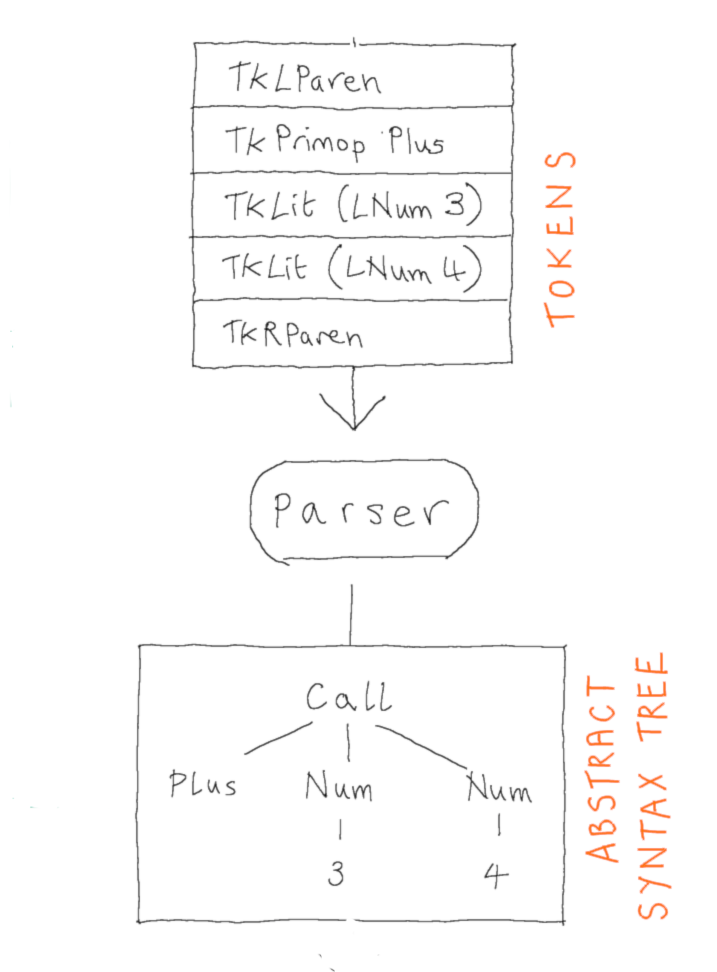 TkLParen
TkPrimop Plus
TkLit (LNum 3)
TkLit (LNum 4)
TkRParen
TOKENS
Parser
Call
Plus Num Num
3 4
ABSTRACT
SYNTAX TREE